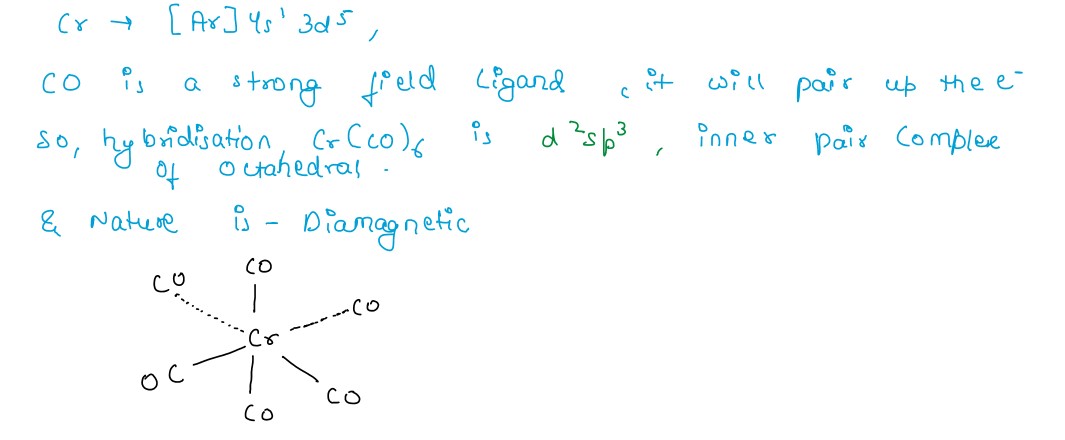 Cr → [Ar] 4s¹ 3d⁵,
CO is a strong field Ligand, it will pair up the e⁻
so, hybridisation Cr(CO)₆ is d²sp³, inner pair Complex
of octahedral.
& Nature is - Diamagnetic
CO
CO
CO
Cr
OC
CO
CO